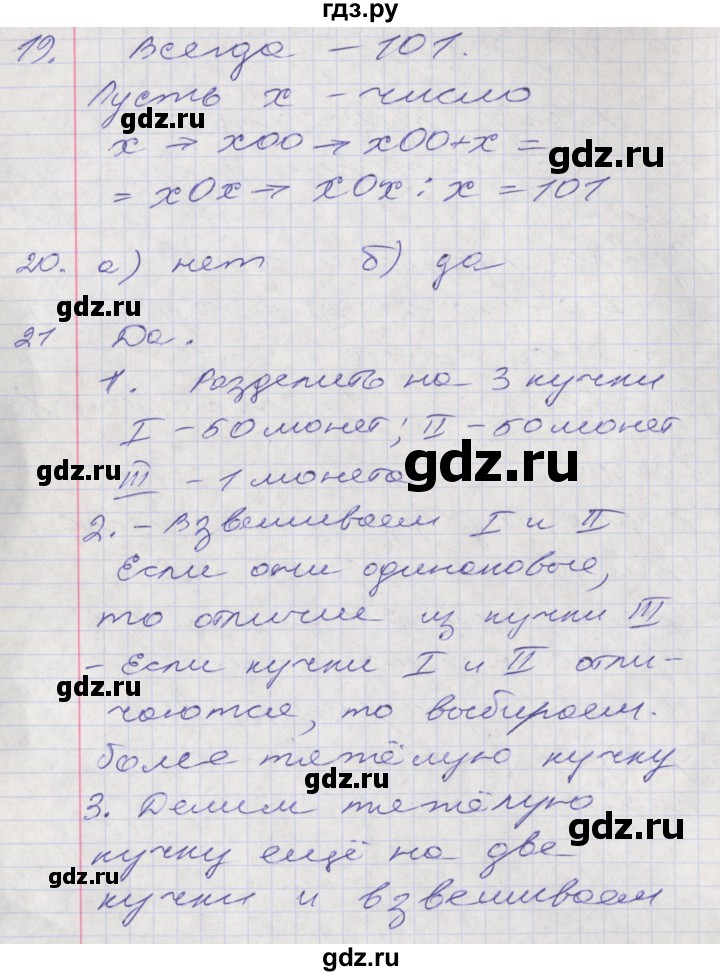 гдз.ру
19. Всегда – 101.
Пусть x – число
gdz.ru
x → x00 → x00+x =
gdz.ru
= x0x → x0x : x = 101
20. а) нет б) да
gdz.ru
21 Да.
1. Разделить на 3 кучки
I – 50 монет; II – 50 монет
gdz.ru
gdz.ru
III – 1 монета
2. – Взвешиваем I и II
Если они одинаковые,
gdz.ru
то отличие из кучки III
– Если кучки I и II отли-
gdz.ru
чаются, то выбираем.
более тяжёлую кучку
gdz.ru
3. Делим тяжёлую
gdz.ru
кучку ещё на две
gdz.ru
кучки и взвешиваем
gdz.ru